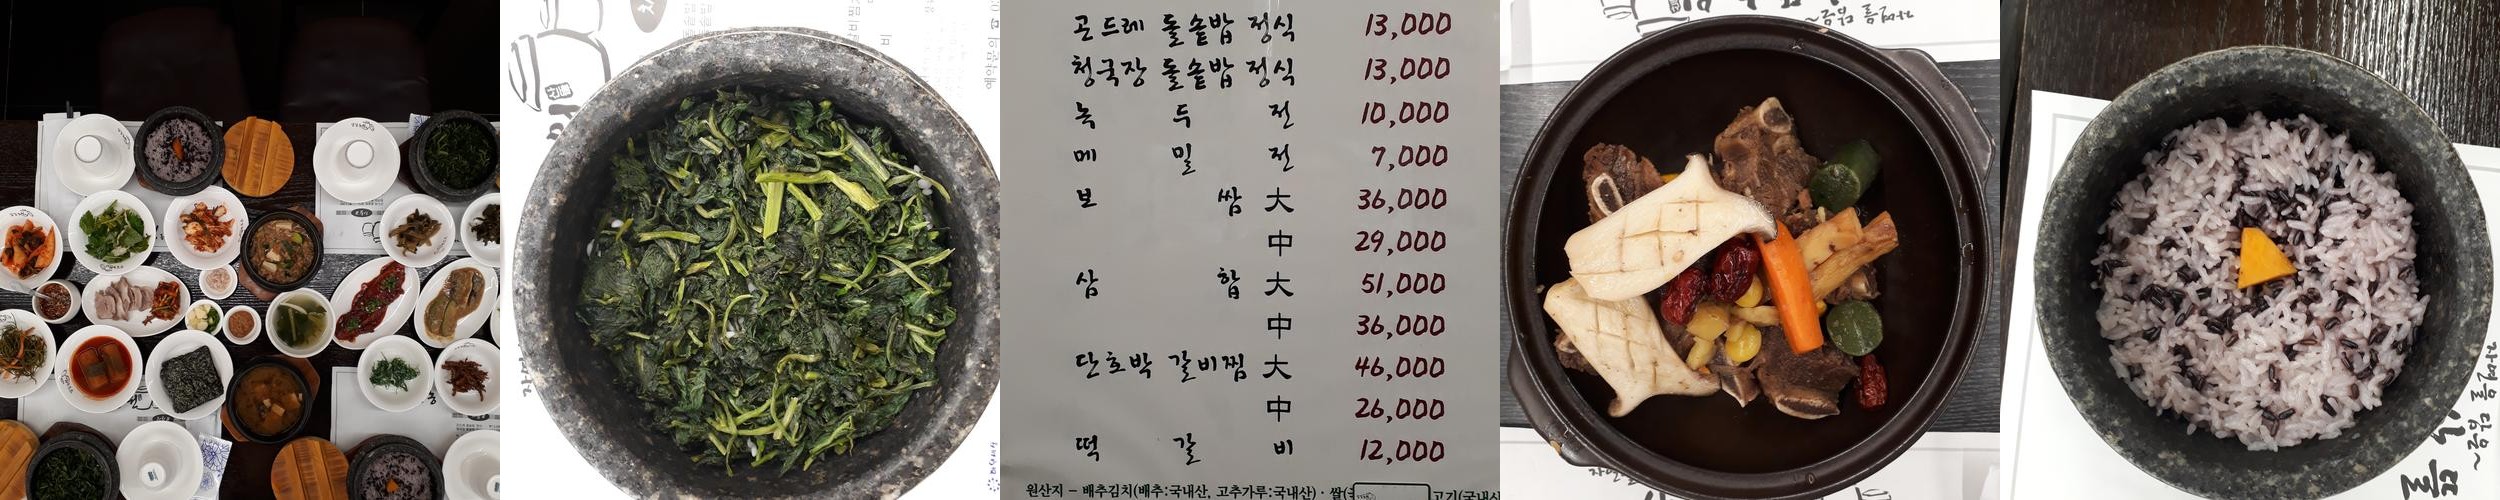 곤드레 돌솥밥 정식 13,000
청국장 돌솥밥 정식 13,000
녹두전 10,000
메밀전 7,000
보쌈 大 36,000
中 29,000
삼합 大 51,000
中 36,000
단호박 갈비찜 大 46,000
中 26,000
떡갈비 12,000
원산지 - 배추김치(배추:국내산, 고추가루:국내산) · 쌀( 고기(국내산
자연을 담음~